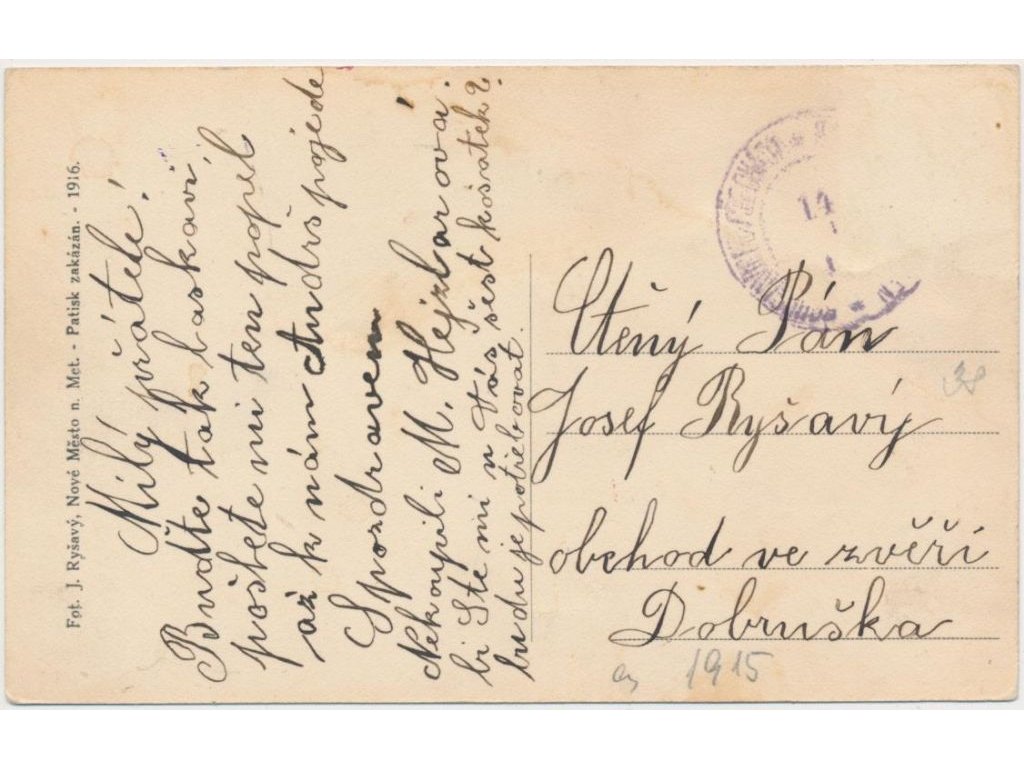 Fot. J. Ryšavý, Nové Město n. Met. - Patisk zakázán. - 1916.
Milý přátelé!
Buďte tak laskaví
pošlete mi ten popěl
až k nám Andrš pojede
S pozdravem
Nekoupili M. Hejzlarová.
bi Ste mi u Vás šest košatek?
budu je potřebovat.
Ctěný Pán
Josef Ryšavý
obchod ve zvěří
Dobruška
1915
38
14